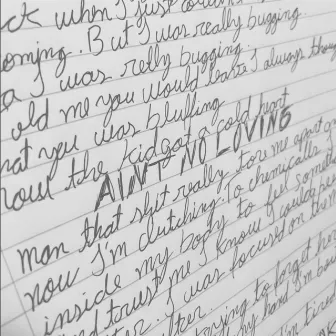 ck when I just
oming. But I was really bugging.
a I was relly bugging.
old me you would leave I always thoug
hat you was bluffing
Now the kid got a cold heart
AIN'T NO LOVING
man that shit really tore me apart
now I'm clutching. To chemically
inside my body to feel some
and trust me I know I could
ter. I was focused on them
lter. trying to forget
hard I'm